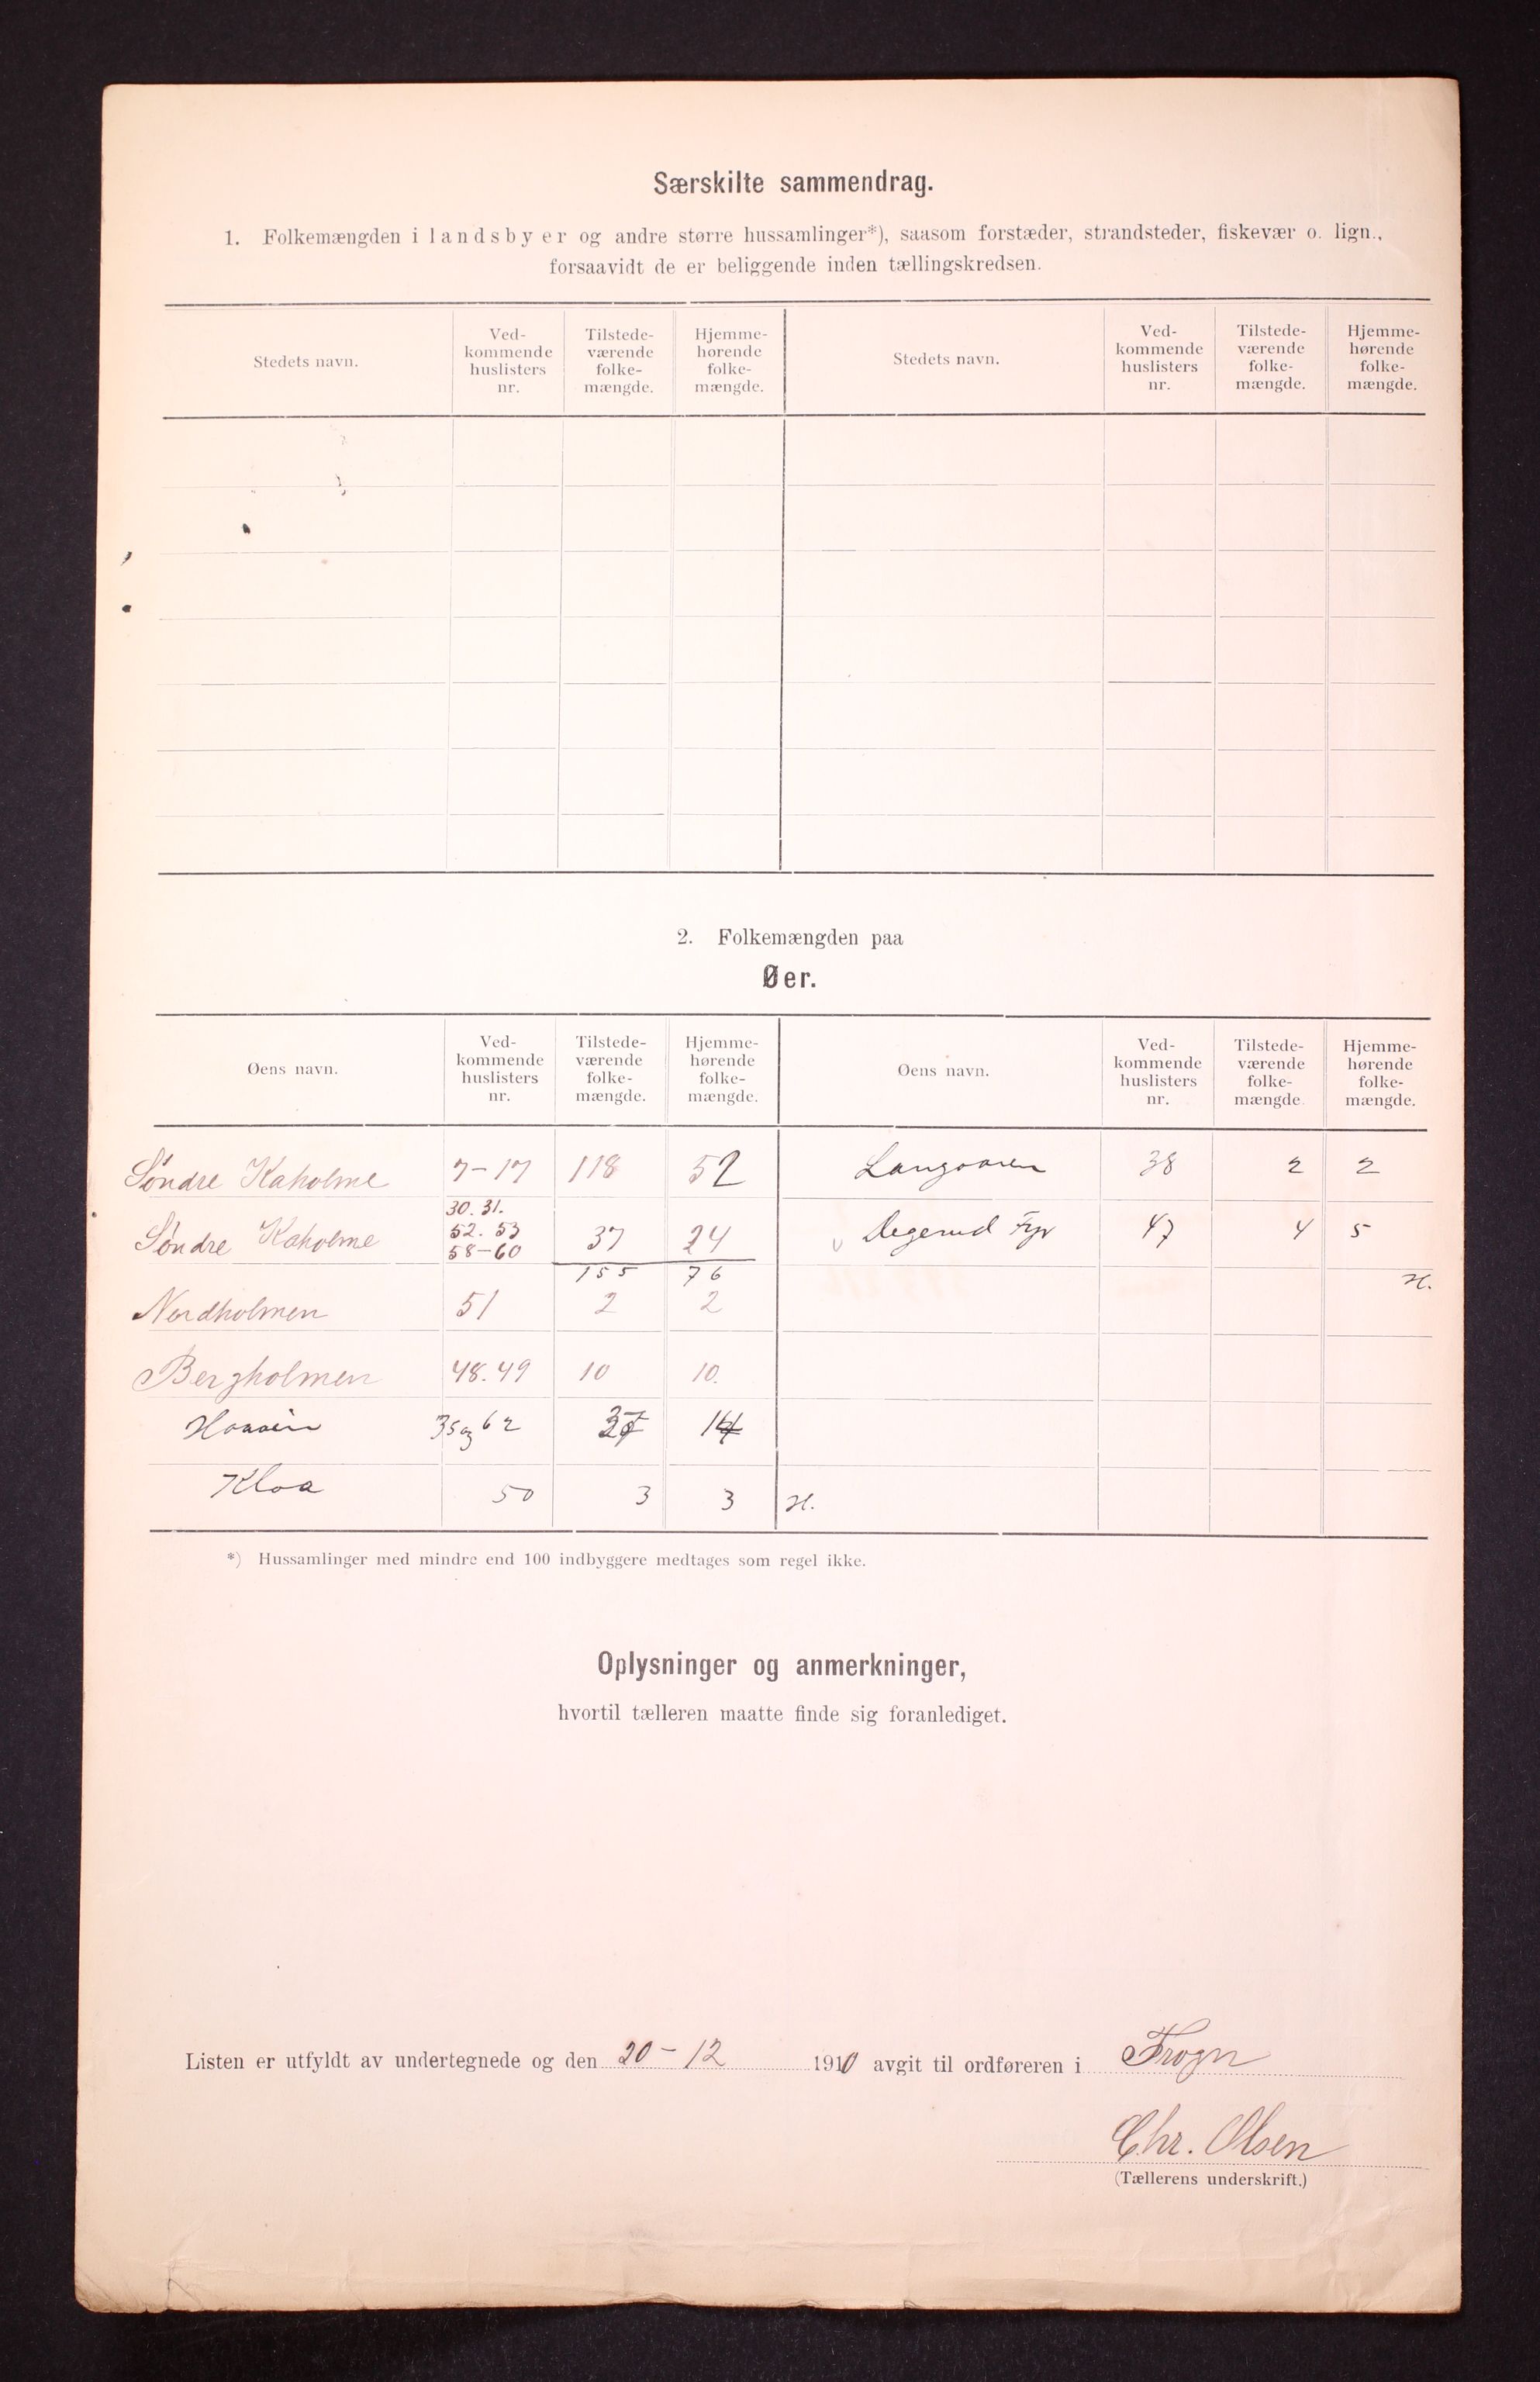 Særskilte sammendrag.
1. Folkemængden i landsbyer og andre større hussamlinger*), saasom forstæder, strandsteder, fiskevær o. lign.,
forsaavidt de er beliggende inden tællingskredsen.
Stedets navn. Ved-kommende huslisters nr. Tilstede-værende folke-mængde. Hjemme-hørende folke-mængde. Stedets navn. Ved-kommende huslisters nr. Tilstede-værende folke-mængde. Hjemme-hørende folke-mængde.
2. Folkemængden paa
Øer.
Øens navn. Ved-kommende huslisters nr. Tilstede-værende folke-mængde. Hjemme-hørende folke-mængde. Øens navn. Ved-kommende huslisters nr. Tilstede-værende folke-mængde. Hjemme-hørende folke-mængde.
Søndre Kaholme 7-17 118 52 Langaaren 38 2 2
Søndre Kaholme 30. 31. 52. 53 58-60 37 24 Degerud Fyr 47 4 5
155 76 H.
Nordholmen 51 2 2
Bergholmen 48. 49 10 10.
Haaøen 35 og 62
Kloa 50 3 3 H.
*) Hussamlinger med mindre end 100 indbyggere medtages som regel ikke.
Oplysninger og anmerkninger,
hvortil tælleren maatte finde sig foranlediget.
Listen er utfyldt av undertegnede og den 20-12 1910 avgit til ordføreren i Frogn
Chr. Olsen
(Tællerens underskrift.)